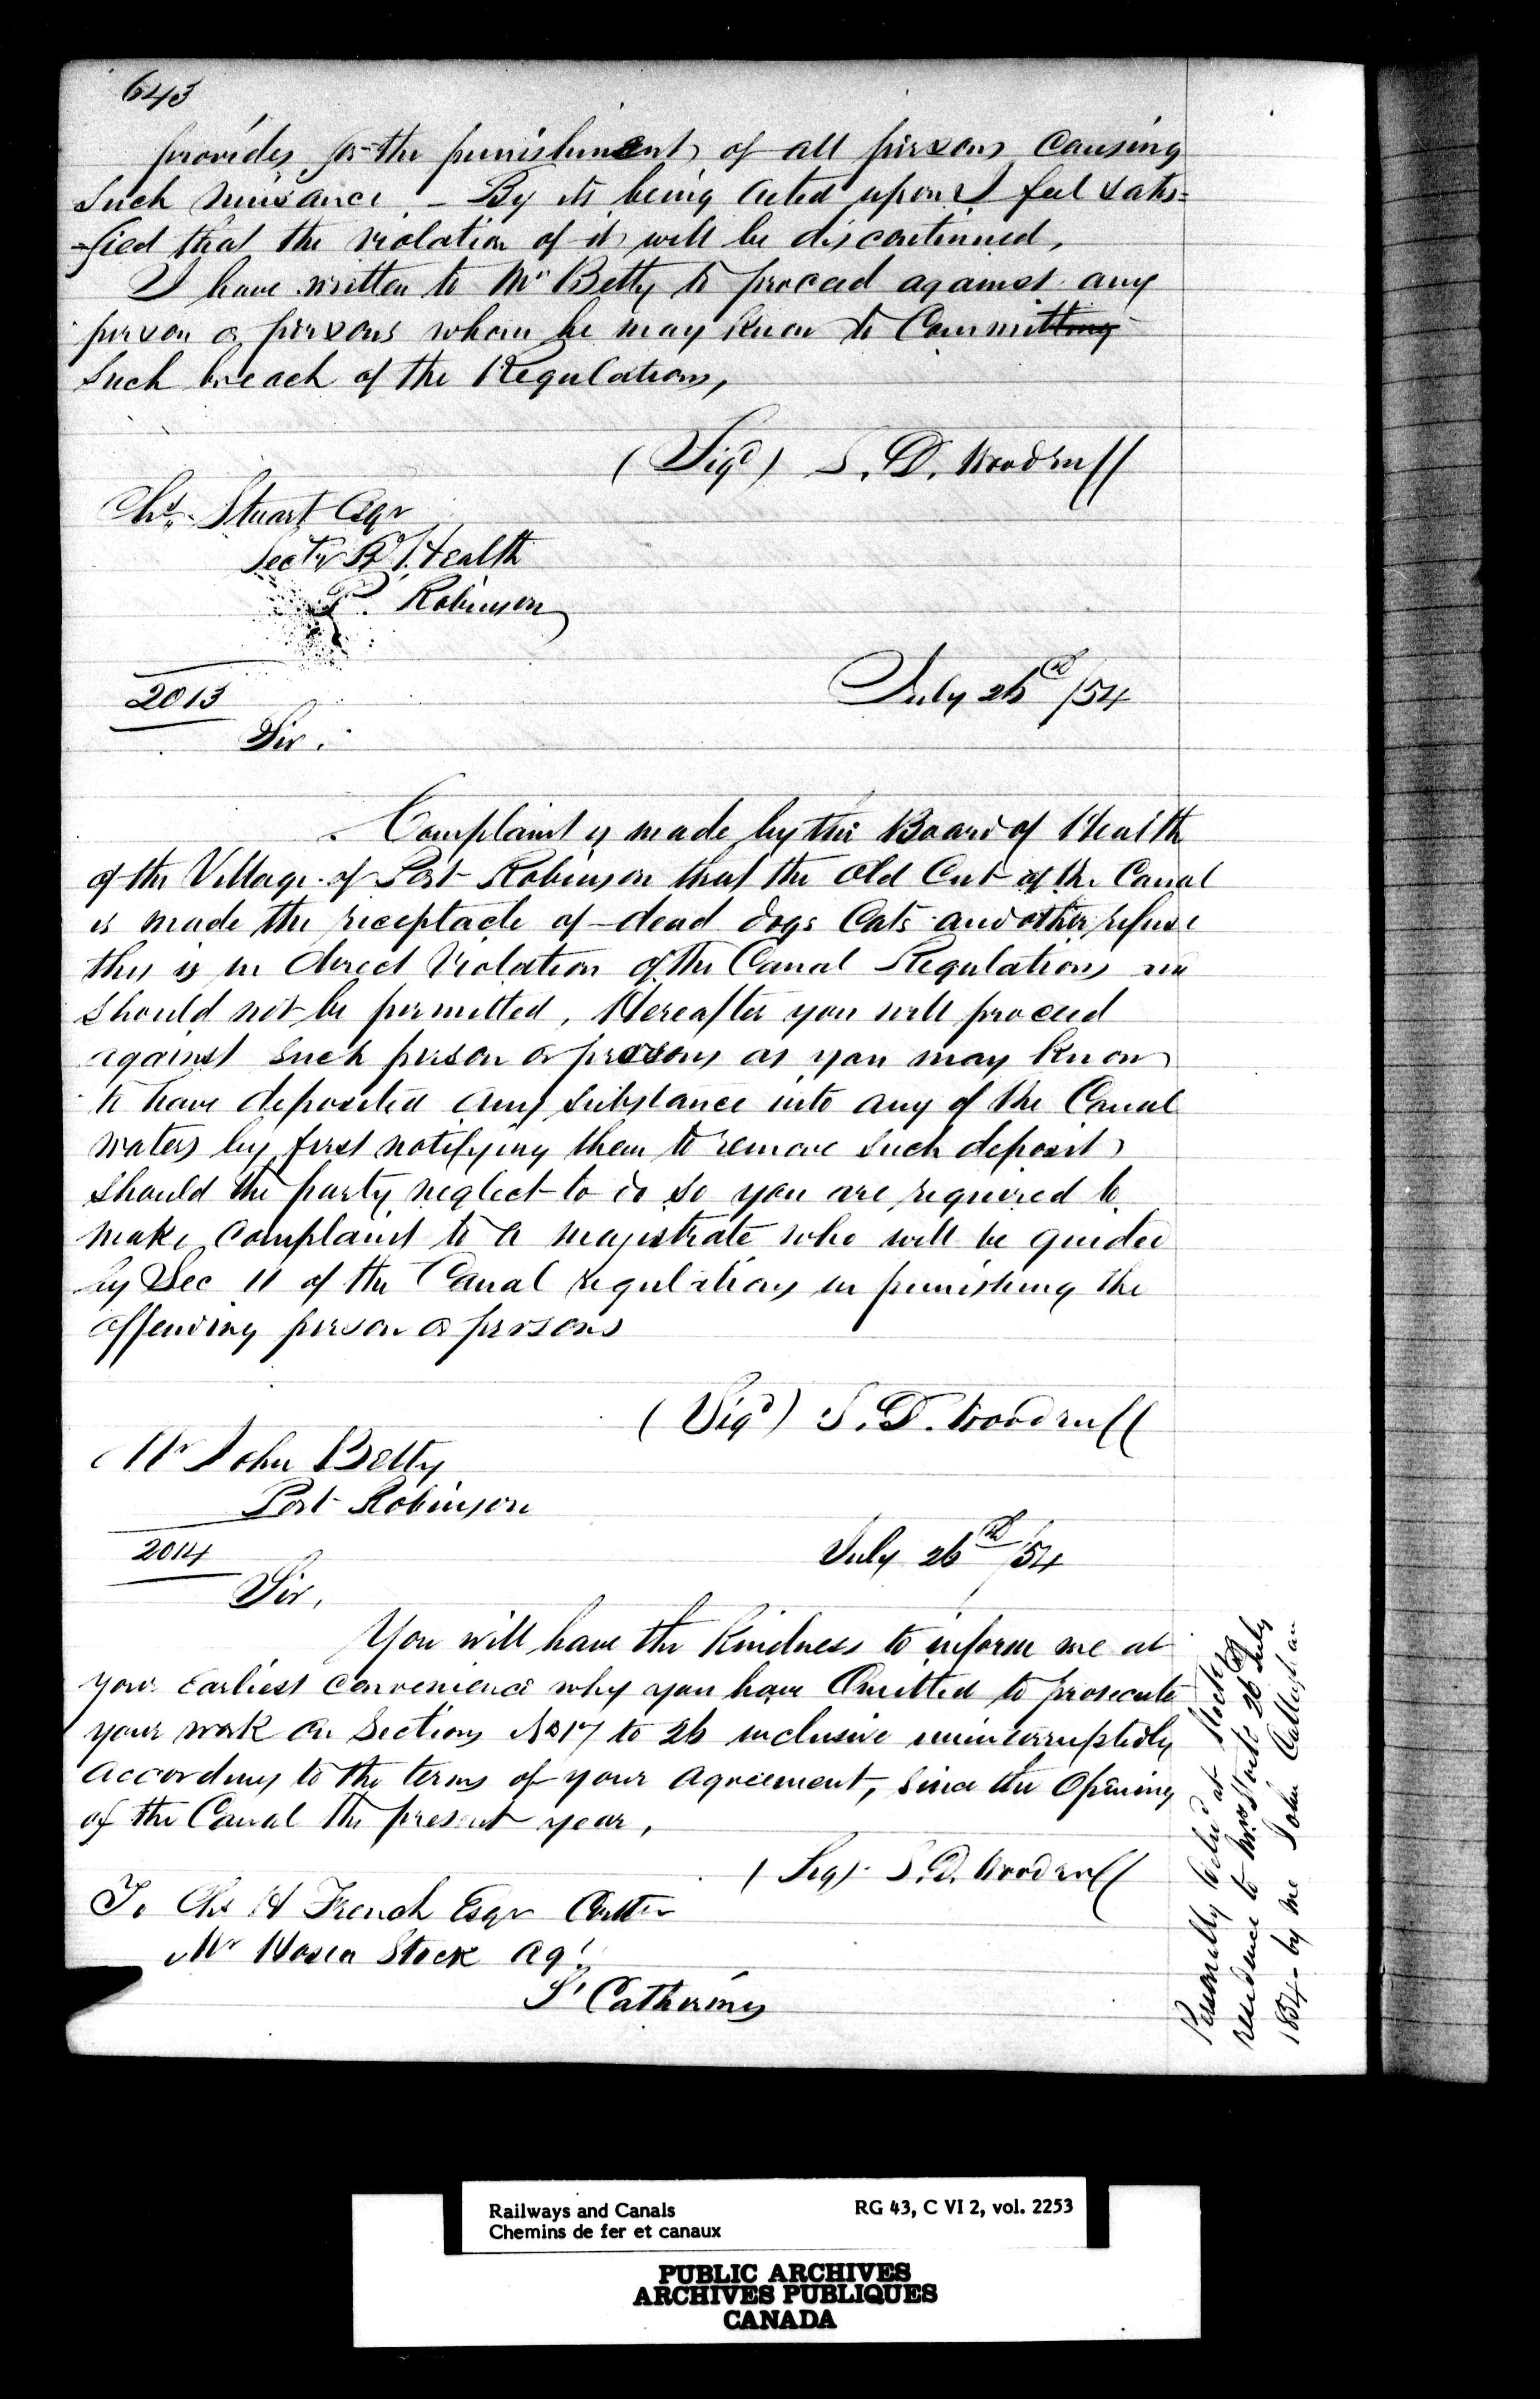 643
provides for the punishment of all persons causing
such nuisance. - By its being acted upon I feel satis=
-fied that the violation of it will be discontinued,
I have written to Mr Betty to proceed against any
person or persons whom he may know to Committing
such breach of the Regulations,
(Sigd) S. D. Woodruff
Chs. Stuart Esqr
Secty Bd. Health
P. Robinson
2013
July 26th /54
Sir.
Complaint is made by the Board of Health
of the Village of Port Robinson that the Old Cut of the Canal
is made the receptacle of dead dogs Cats and other refuse
this is in direct Violation of the Canal Regulations
should not be permitted, Hereafter you will proceed
against such person or persons as you may know
to have deposited any substance into any of the Canal
waters by first notifying them to remove such deposit
should the party neglect to do so you are required to
make complaint to a magistrate who will be guided
by Sec 11 of the Canal regulations in punishing the
offending person or persons
(Sigd) S. D. Woodruff
Mr John Betty
Port Robinson
2014
July 26th /54
Sir,
You will have the kindness to inform me at
your earliest convenience why you have Omitted to prosecute
your work on Sections No 17 to 26 inclusive uninterruptedly
according to the terms of your agreement, since the Opening
of the Canal the present year,
(Sigd) S. D. Woodruff
To Chs H French Esqr
Mr Hosea Stock agt
St Catharines
Personally at Stock's
residence to Mrs Stock 26th July
1854 - by me John Callaghan
Railways and Canals
Chemins de fer et canaux
RG 43, C VI 2, vol. 2253
PUBLIC ARCHIVES
ARCHIVES PUBLIQUES
CANADA